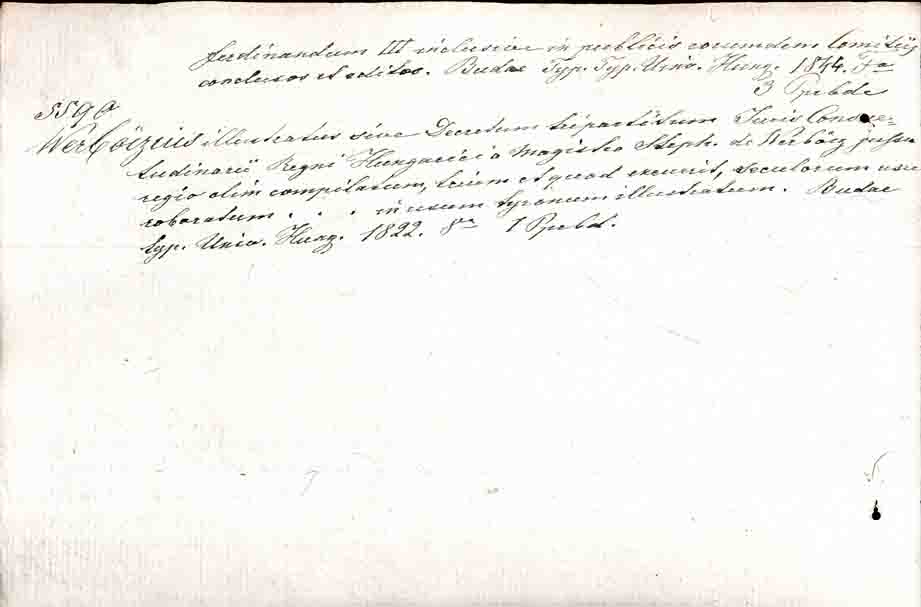 Ferdinandum III inclusive in publicis eorumdem Comitiis
conclusos et editos. Budae Typ. Typ. Univ. Hung. 1844. Fo
3 Ppebde
5590
Werböczius illustratus sive Decretum tripartitum Juris Consue=
tudinarii Regni Hungarici a Magistro Steph. de Werböcz jussu
regio olim compilatum, legum et quod exuerit, seculorum usu
roboratum . . . in usum tyronum illustratum. Budae
typ. Univ. Hung. 1822. 8° 1 Ppbd.